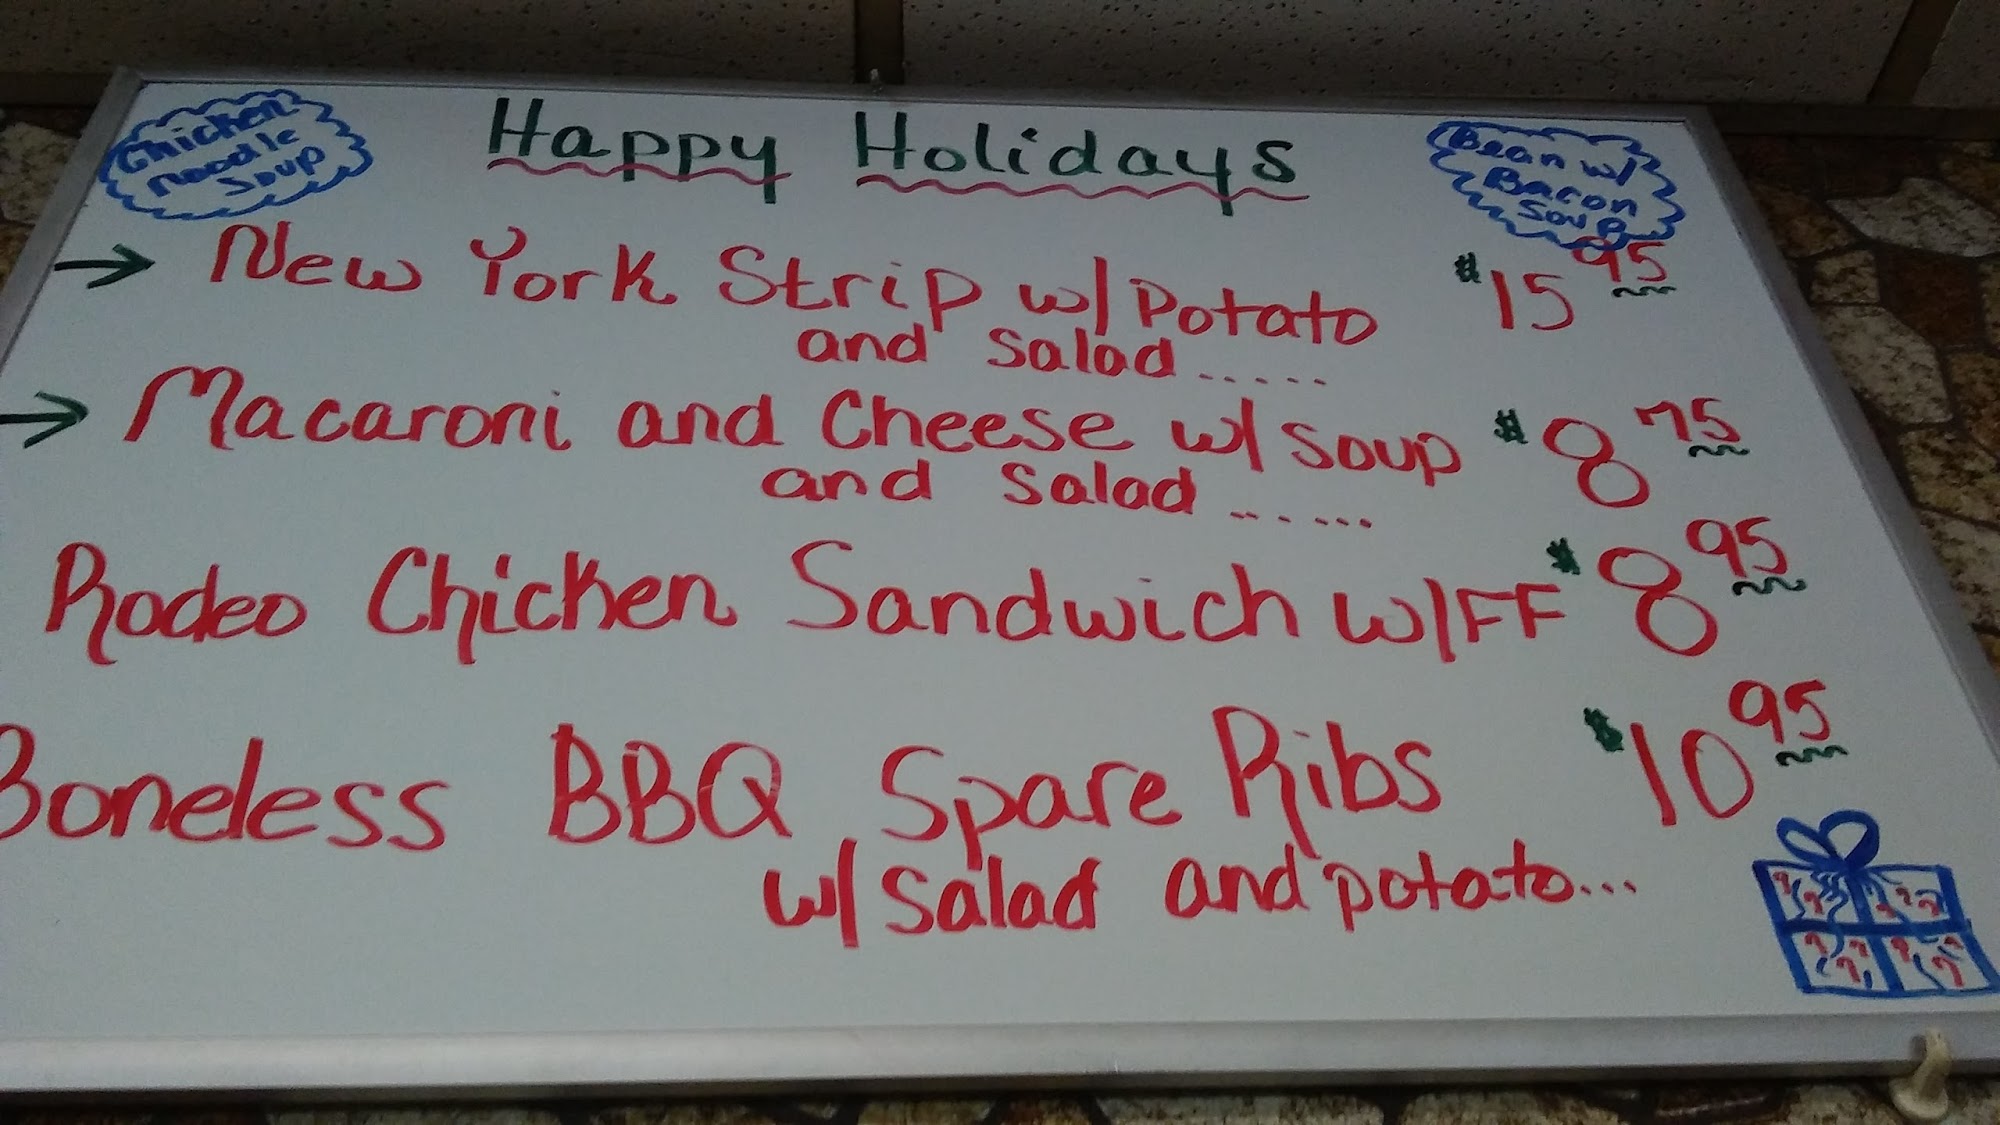 Chicken
noodle
soup
Happy Holidays
Bean w/
Bacon
soup
→ New York Strip w/ Potato $15 95
and salad.....
→ Macaroni and Cheese w/ soup $8 75
and salad......
Rodeo Chicken Sandwich w/FF $8 95
Boneless BBQ Spare Ribs $10 95
w/ salad and potato...